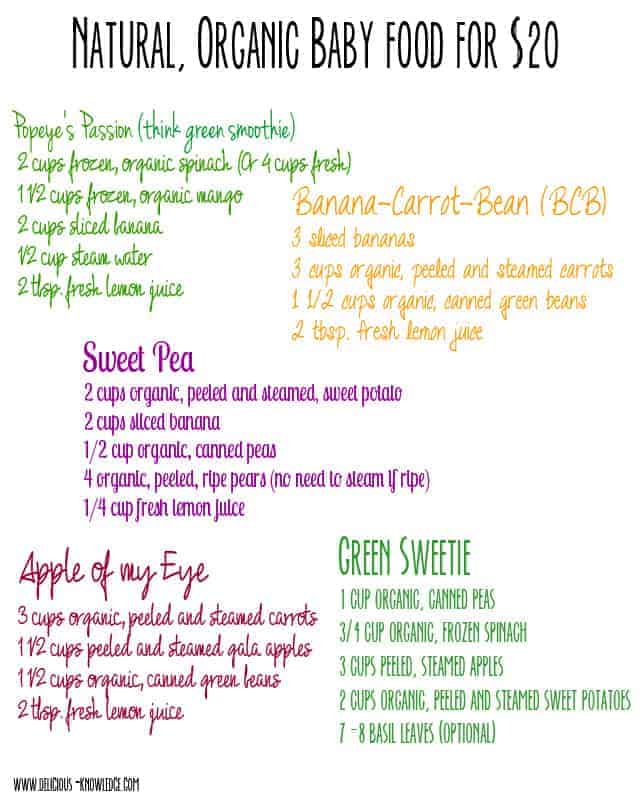 Natural, Organic Baby food for $20
Popeye's Passion (think green smoothie)
2 cups frozen, organic spinach (Or 4 cups fresh)
1 1/2 cups frozen, organic mango
2 cups sliced banana
1/2 cup steam water
2 tbsp. fresh lemon juice
Banana-Carrot-Bean (BCB)
3 sliced bananas
3 cups organic, peeled and steamed carrots
1 1/2 cups organic, canned green beans
2 tbsp. fresh lemon juice
Sweet Pea
2 cups organic, peeled and steamed, sweet potato
2 cups sliced banana
1/2 cup organic, canned peas
4 organic, peeled, ripe pears (no need to steam if ripe)
1/4 cup fresh lemon juice
Apple of my Eye
3 cups organic, peeled and steamed carrots
1 1/2 cups peeled and steamed gala apples
1 1/2 cups organic, canned green beans
2 tbsp. fresh lemon juice
Green Sweetie
1 cup organic, canned peas
3/4 cup organic, frozen spinach
3 cups peeled, steamed apples
2 cups organic, peeled and steamed sweet potatoes
7 -8 basil leaves (optional)
www.delicious-knowledge.com